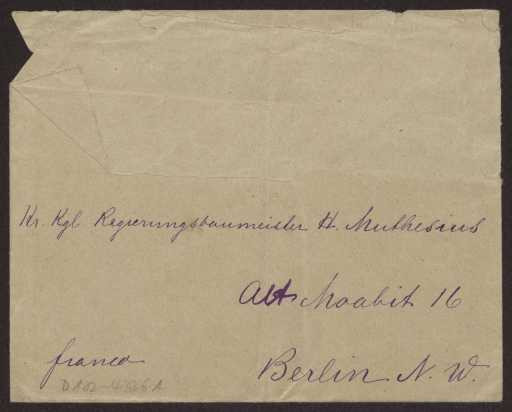 Hr. Kgl. Regierungsbaumeister H. Muthesius
Alt Moabit 16
franco
Berlin N. W.